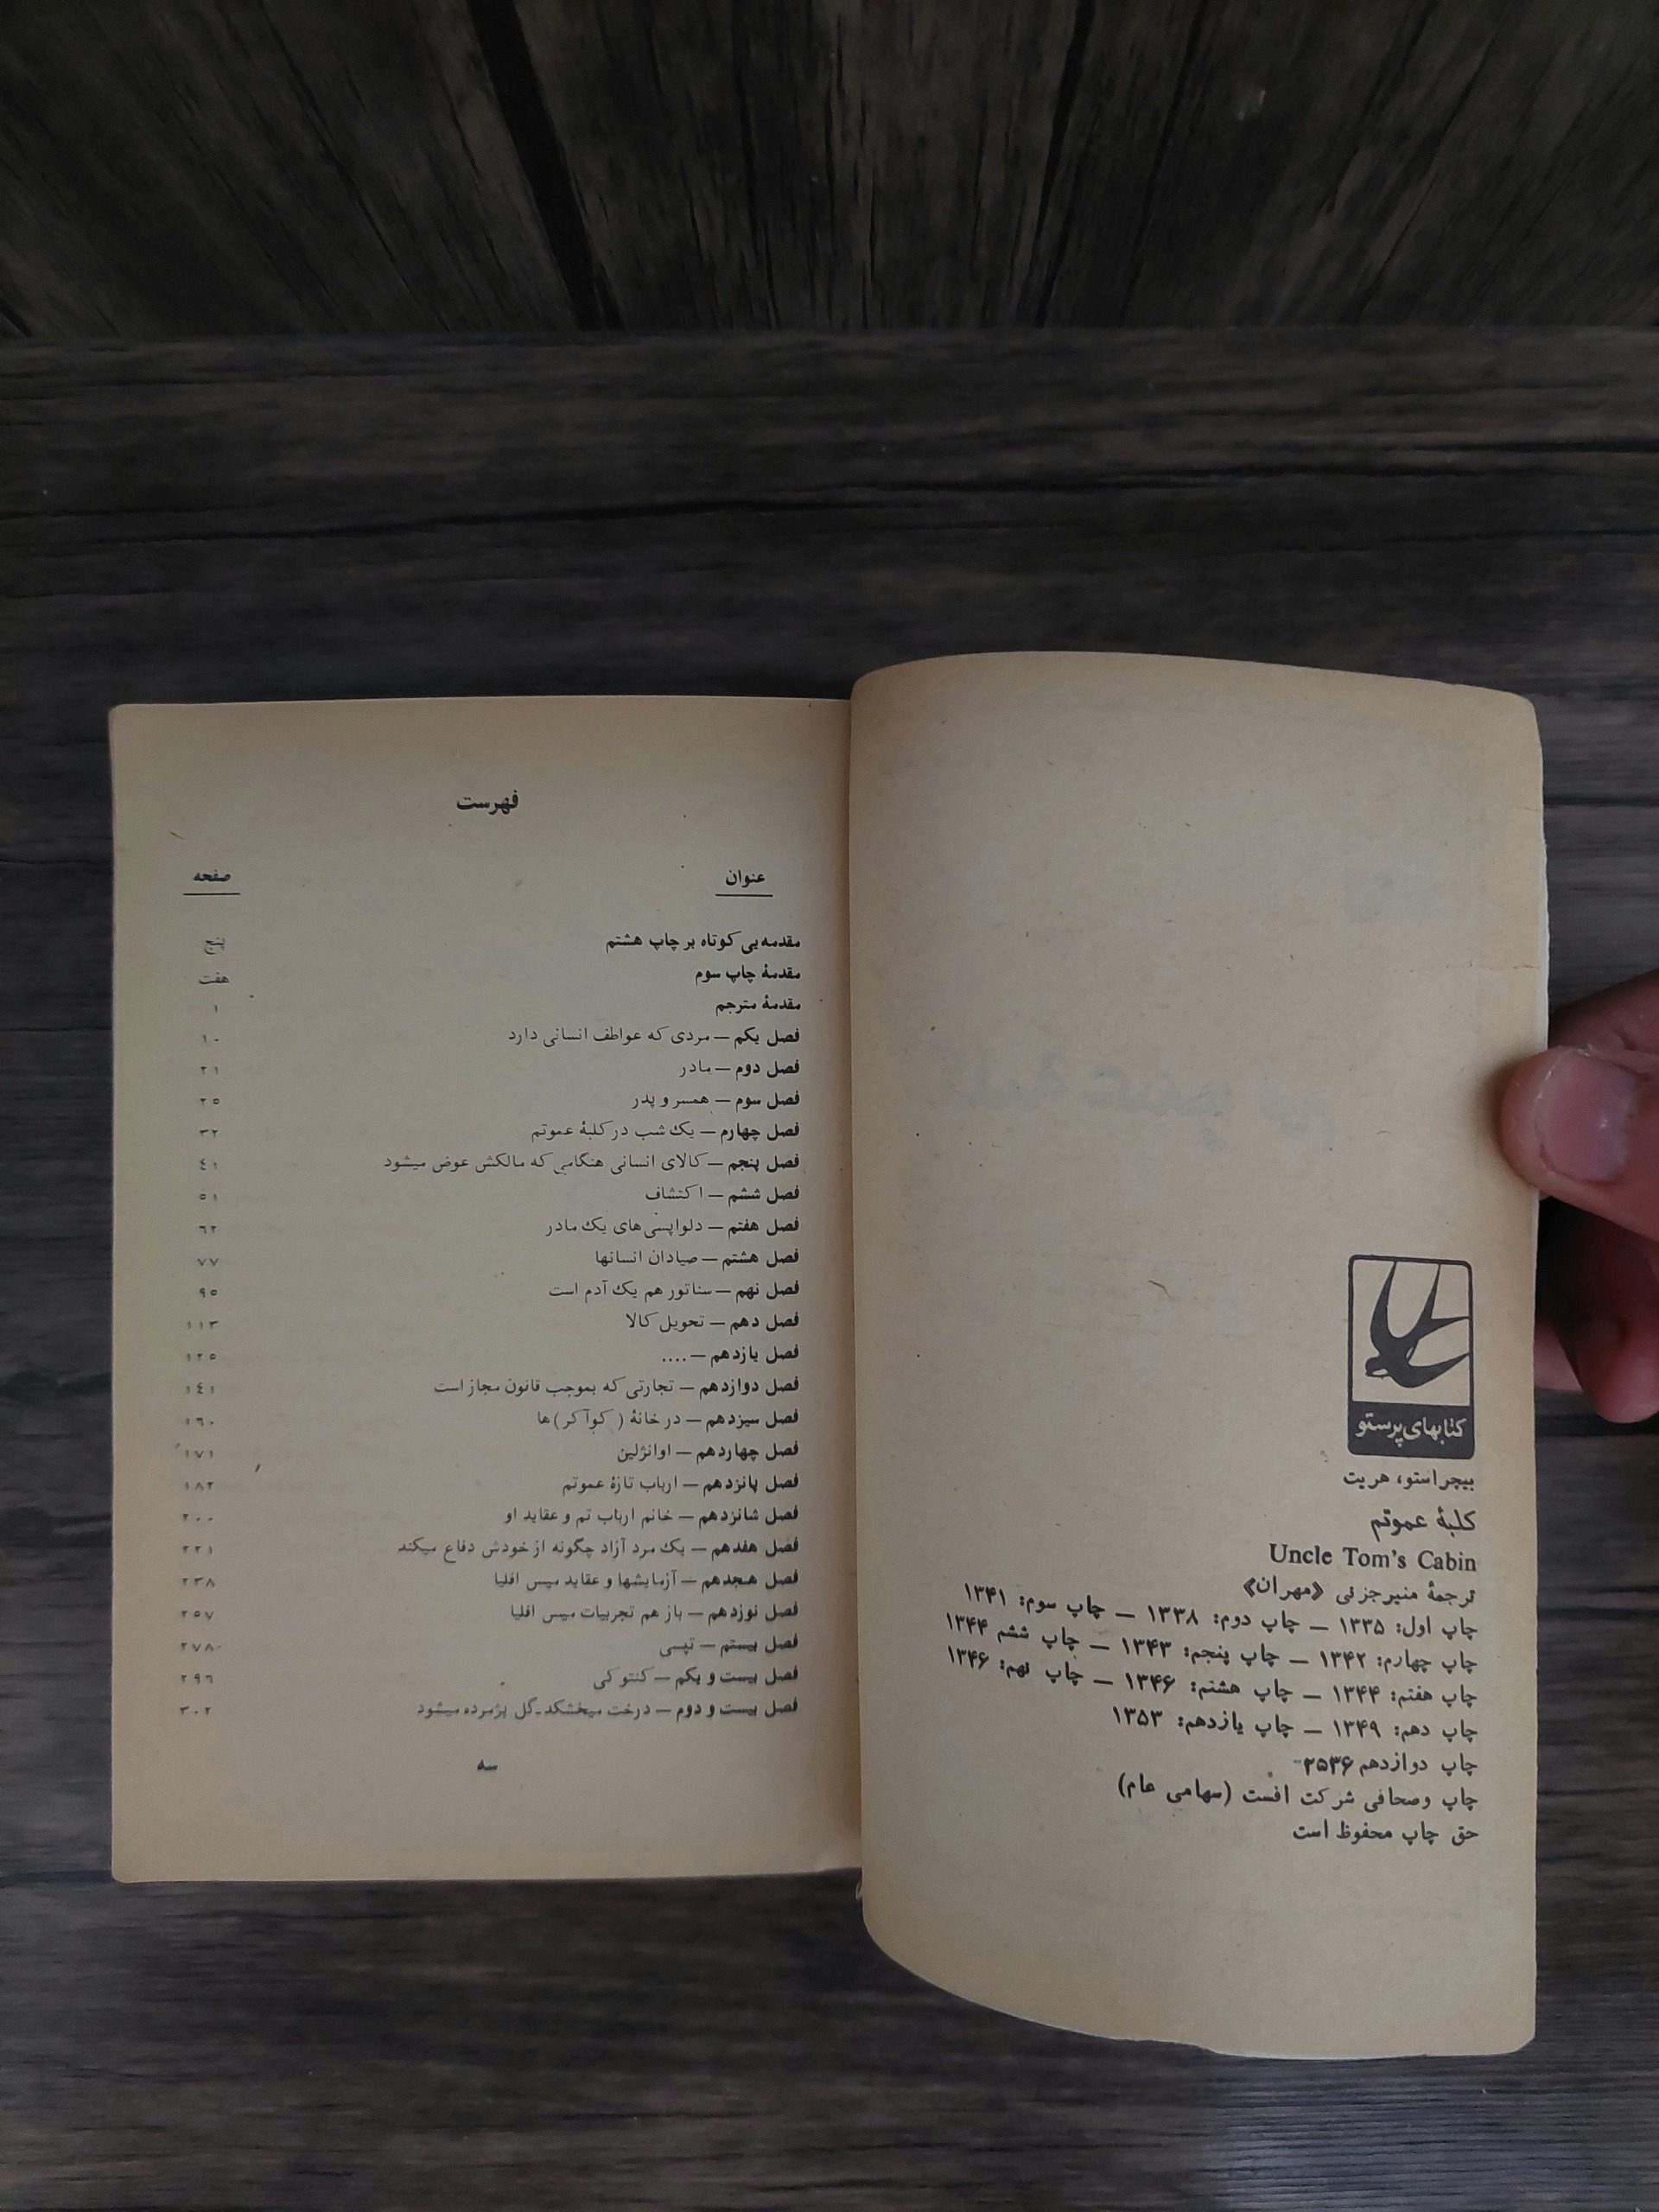 کتابهای پرستو
بیچر استو، هریت
کلبهٔ عموتم
Uncle Tom's Cabin
ترجمهٔ منیر جزنی «مهران»
چاپ اول: ۱۳۳۵ — چاپ دوم: ۱۳۳۸ — چاپ سوم: ۱۳۴۱
چاپ چهارم: ۱۳۴۲ — چاپ پنجم: ۱۳۴۳ — چاپ ششم ۱۳۴۴
چاپ هفتم: ۱۳۴۴ — چاپ هشتم: ۱۳۴۶ — چاپ نهم: ۱۳۴۶
چاپ دهم: ۱۳۴۹ — چاپ یازدهم: ۱۳۵۳
چاپ دوازدهم ۲۵۳۶
چاپ وصحافی شرکت افست (سهامی عام)
حق چاپ محفوظ است
فهرست
عنوان صفحه
مقدمه یی کوتاه بر چاپ هشتم پنج
مقدمهٔ چاپ سوم هفت
مقدمهٔ مترجم ۱
فصل یکم — مردی که عواطف انسانی دارد ۱۰
فصل دوم — مادر ۲۱
فصل سوم — همسر و پدر ۲۵
فصل چهارم — یک شب در کلبهٔ عموتم ۳۲
فصل پنجم — کالای انسانی هنگامی که مالکش عوض میشود ۴۱
فصل ششم — اکتشاف ۵۱
فصل هفتم — دلواپسی های یک مادر ۶۲
فصل هشتم — صیادان انسانها ۷۷
فصل نهم — سناتور هم یک آدم است ۹۵
فصل دهم — تحویل کالا ۱۱۳
فصل یازدهم — .... ۱۲۵
فصل دوازدهم — تجارتی که بموجب قانون مجاز است ۱۴۱
فصل سیزدهم — در خانهٔ (کوآکر) ها ۱۶۰
فصل چهاردهم — اوانژلین ۱۷۱
فصل پانزدهم — ارباب تازهٔ عموتم ۱۸۲
فصل شانزدهم — خانم ارباب تم و عقاید او ۲۰۰
فصل هفدهم — یک مرد آزاد چگونه از خودش دفاع میکند ۲۲۱
فصل هجدهم — آزمایشها و عقاید میس افلیا ۲۳۸
فصل نوزدهم — باز هم تجربیات میس افلیا ۲۵۷
فصل بیستم — تپسی ۲۷۸
فصل بیست و یکم — کنتوکی ۲۹۶
فصل بیست و دوم — درخت میخشکد-گل پژمرده میشود ۳۰۲
سه